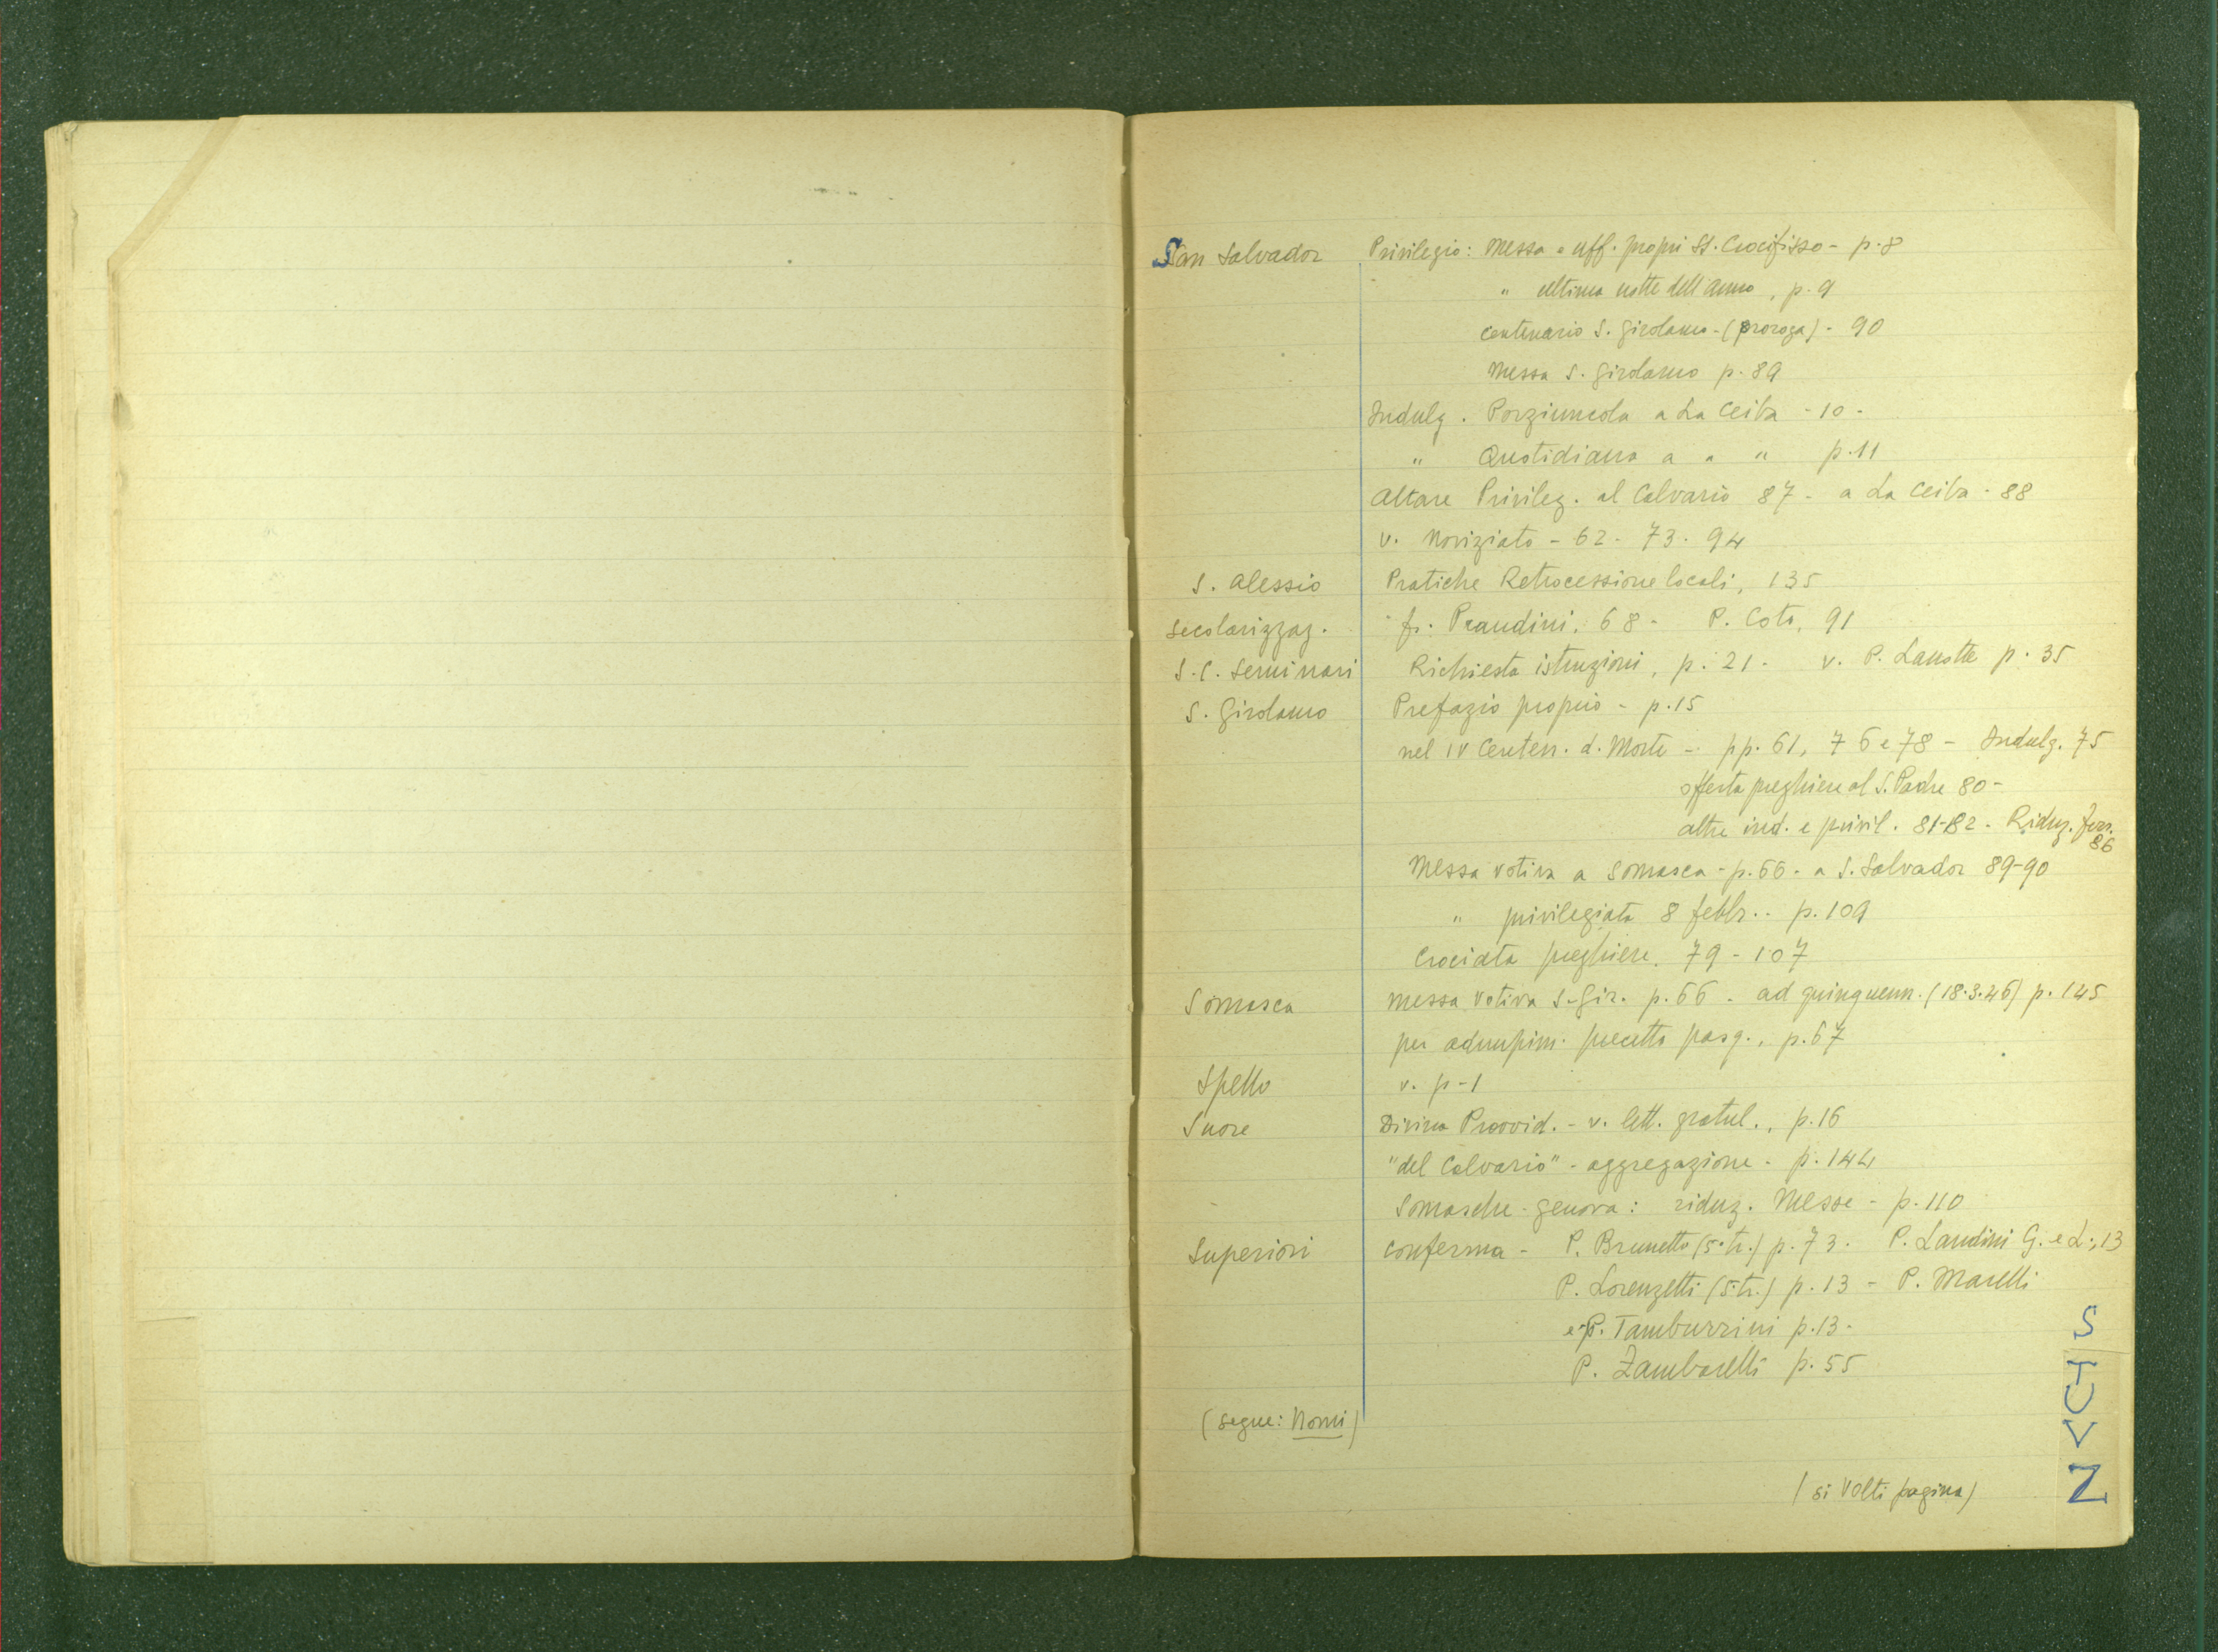 San Salvador Privilegio: Messa e uff. propri SS. Crocifisso - p. 8
" ultima notte dell'anno, p. 9
centenario S. Girolamo - (proroga) - 90
Messa S. Girolamo p. 89
Indulg. Porziuncola a La Ceiba - 10 -
" Quotidiana a " " p. 11
Altare Privileg. al Calvario 87 - a La Ceiba - 88
v. Noviziato - 62 - 73 - 94
S. Alessio Pratiche Retrocessione locali, 135
Secolarizzaz. fr. Prandini, 68 - P. Coto, 91
S. C. Seminari Richiesta istruzioni, p. 21 - v. P. p. 35
S. Girolamo Prefazio proprio - p. 15
nel IV Centen. d. Morte - pp. 61, 76 e 78 - Indulg. 75
offerta preghiere al S. Padre 80 -
altre ind. e privil. 81-82 - Riduz. ferr. 86
Messa votiva a Somasca - p. 66 - a S. Salvador 89-90
" privilegiata 8 febbr.. p. 109
Crociata preghiere. 79 - 107
Somasca messa votiva S. Gir. p. 66 - ad quinquenn. (18.3.46) p. 145
per adempim. precetto pasq., p. 67
Spello v. p - 1
Suore Divina Provvid. - v. lett. gratul., p. 16
"del Calvario" - aggregazione - p. 144
Somasche - Genova: riduz. Messe - p. 110
Superiori conferma - P. Brunetti (5° tr.) p. 73 - P. Landini G. e L., 13
P. Lorenzetti (5° tr.) p. 13 - P. Marelli
e P. Tamburrini p. 13 -
P. Zambarelli p. 55
(segue: Nomi)
(si volti pagina)
S
T
U
V
Z